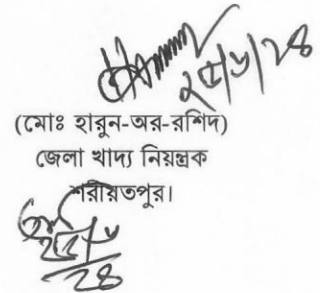 ২৫/৬/২৪
(মোঃ হারুন-অর-রশিদ)
জেলা খাদ্য নিয়ন্ত্রক
শরীয়তপুর।